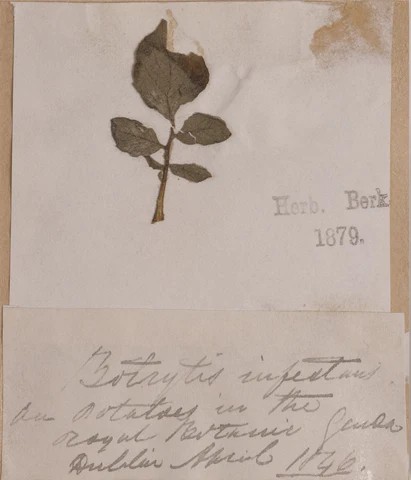 Herb. Berk
1879.
Botrytis infestans
on potatoes in the
Royal Botanic
Dublin April 1846.